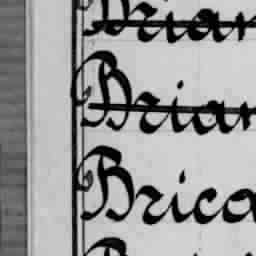 Brian
Brian
Brica